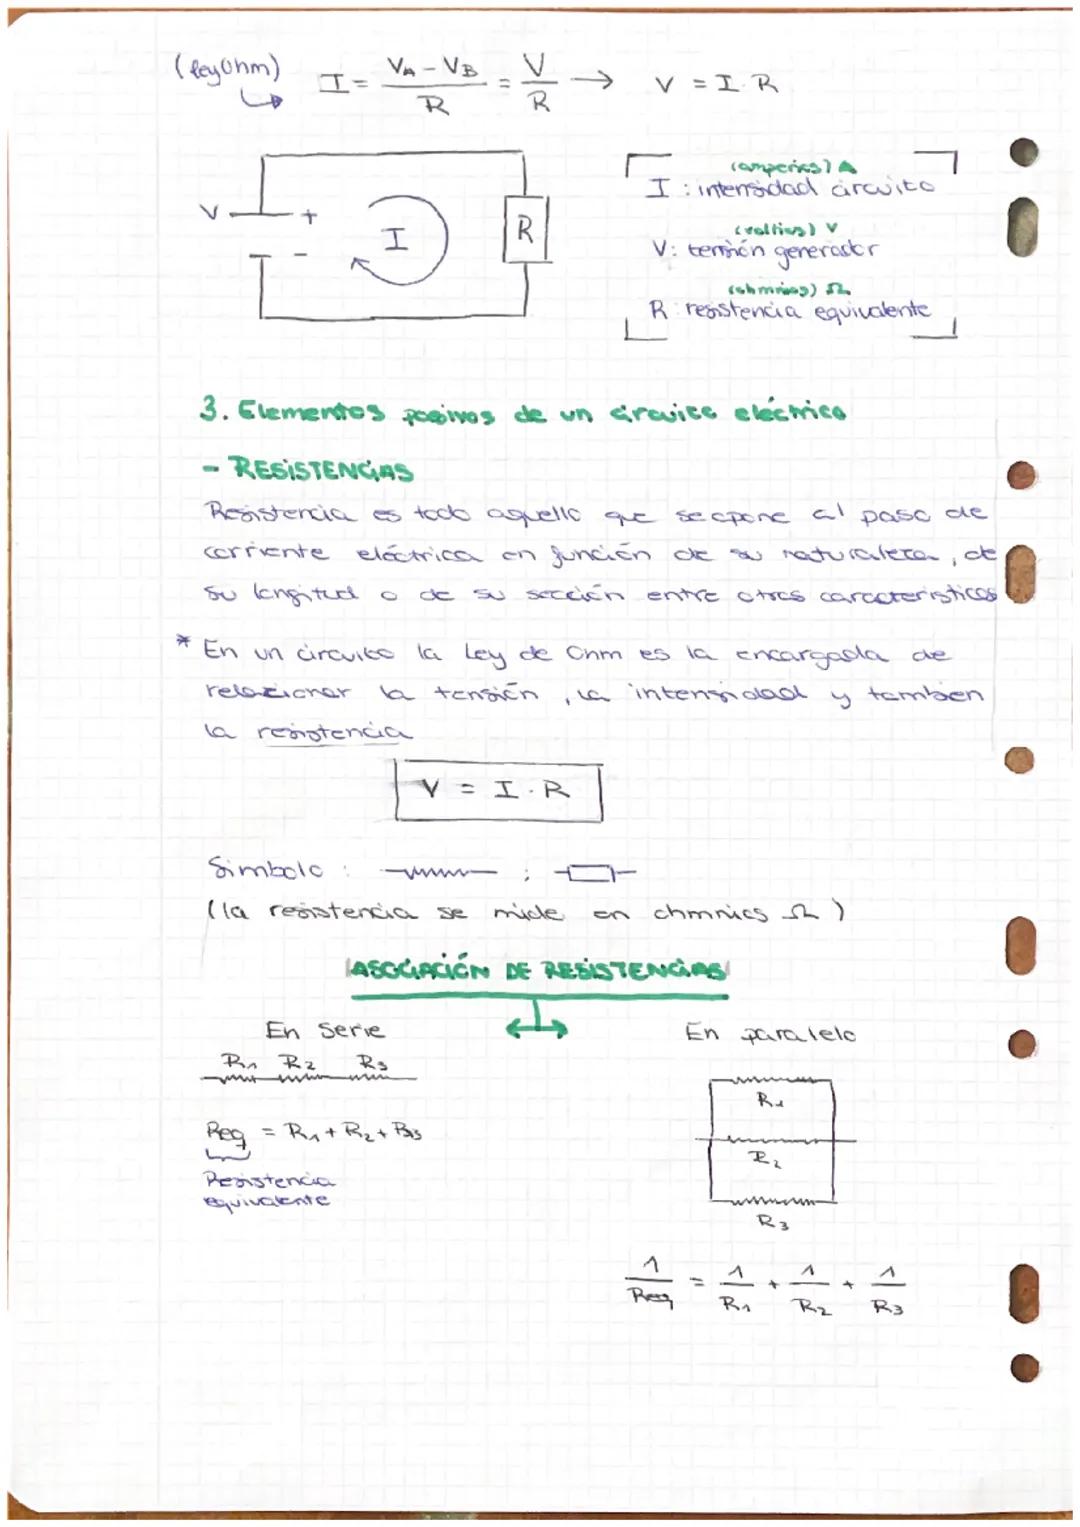 (ley Ohm)
I = (VA - VB)/R = V/R → V = I · R
(amperios) A
I : intensidad circuito
V + -
I
R
(voltios) V
V: tensión generador
(ohmnios) Ω
R: resistencia equivalente
3. Elementos pasivos de un circuito eléctrico
- RESISTENCIAS
Resistencia es todo aquello que se opone al paso de
corriente eléctrica en función de su naturaleza, de
su longitud o de su sección entre otras características
* En un circuito la Ley de Ohm es la encargada de
relacionar la tensión, la intensidad y tambien
la resistencia
V = I · R
Simbolo : ;
(la resistencia se mide en ohmnios Ω)
ASOCIACIÓN DE RESISTENCIAS
En serie
En paralelo
R1 R2 R3
Req = R1 + R2 + R3
Resistencia
equivalente
R1
R2
R3
1/Req = 1/R1 + 1/R2 + 1/R3